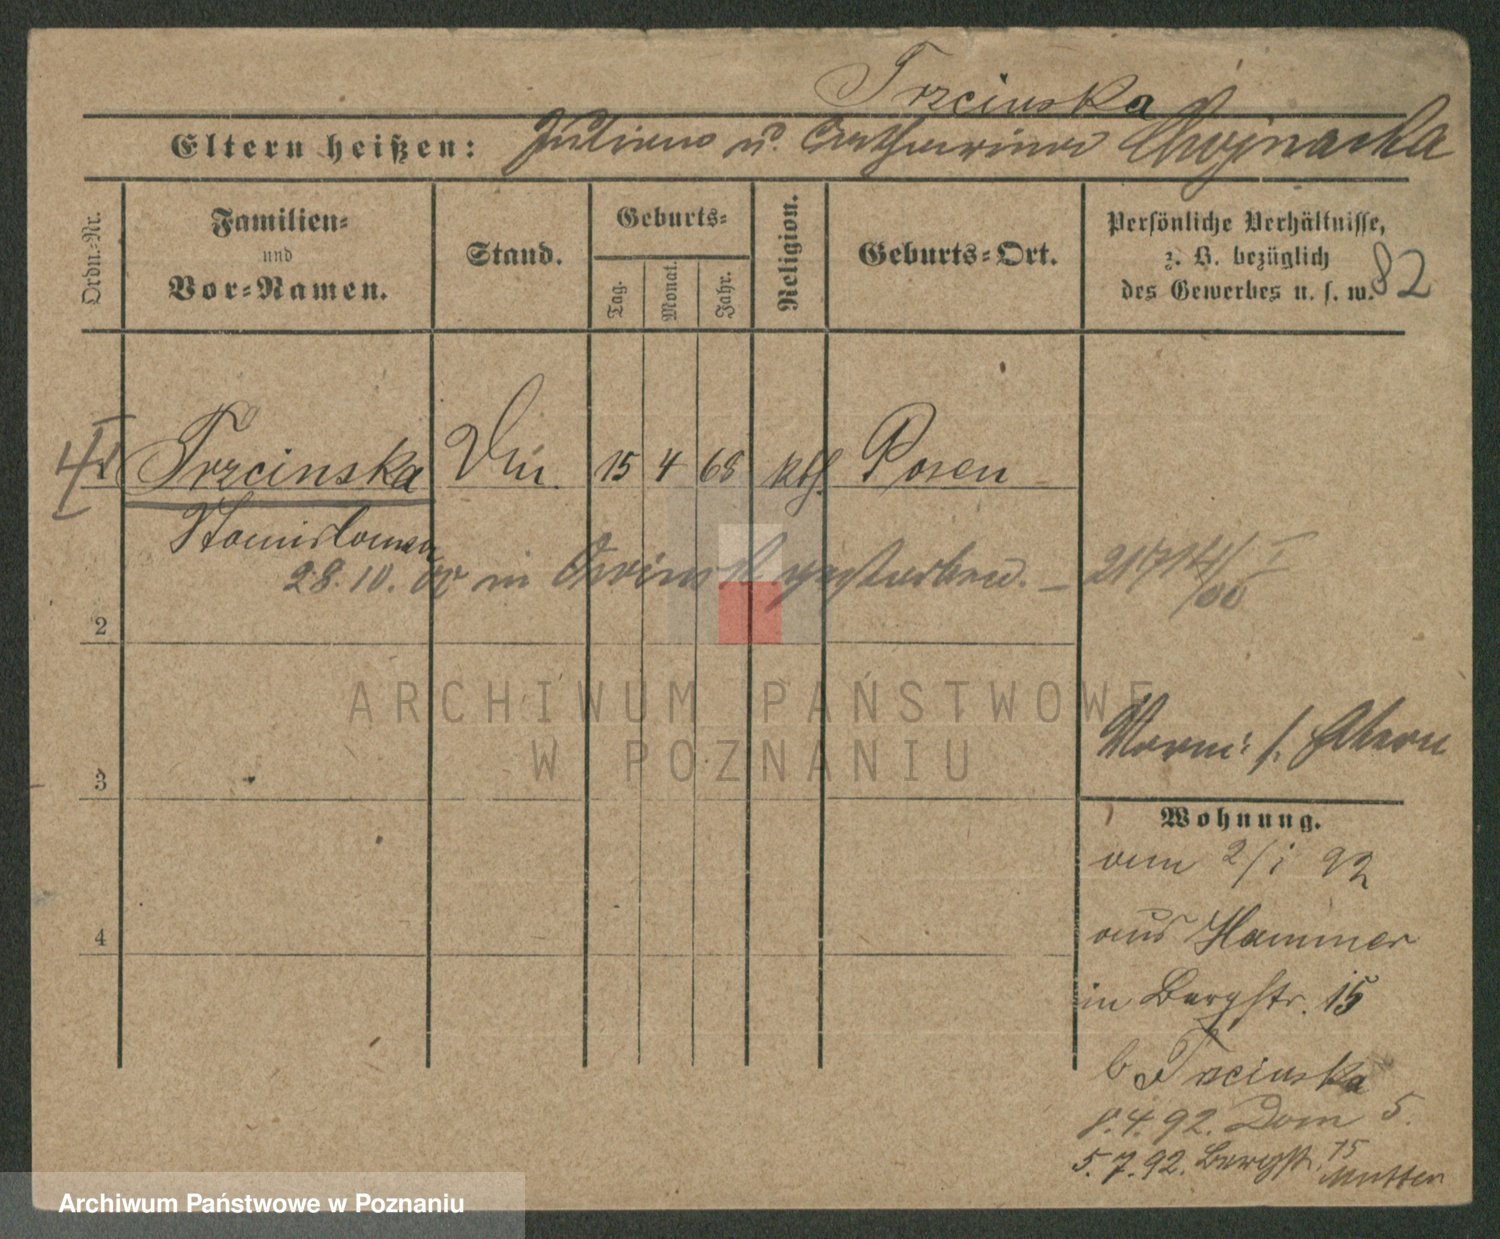 Trzcinska
Eltern heißen: Julian u. Catharina Chojnacka
Ordn.-Nr.
Familien-
und
Vor-Namen.
Stand.
Geburts-
Tag.
Monat.
Jahr.
Religion.
Geburts-Ort.
Persönliche Verhältnisse,
z. B. bezüglich
des Gewerbes u. s. w.
82
Trzcinska 15 4 68 kth Posen
Stanislawa
28.10.00 in Owinsk gestorben. —
2
3
4
ARCHIWUM PAŃSTWOWE
W POZNANIU
s. Eltern
Wohnung.
vom 2/1 92
aus Hammer
in Bergstr. 15
b Trzcinska
8.4.92. Dom 5.
5.7.92. Bergstr. 15
Mutter
Archiwum Państwowe w Poznaniu